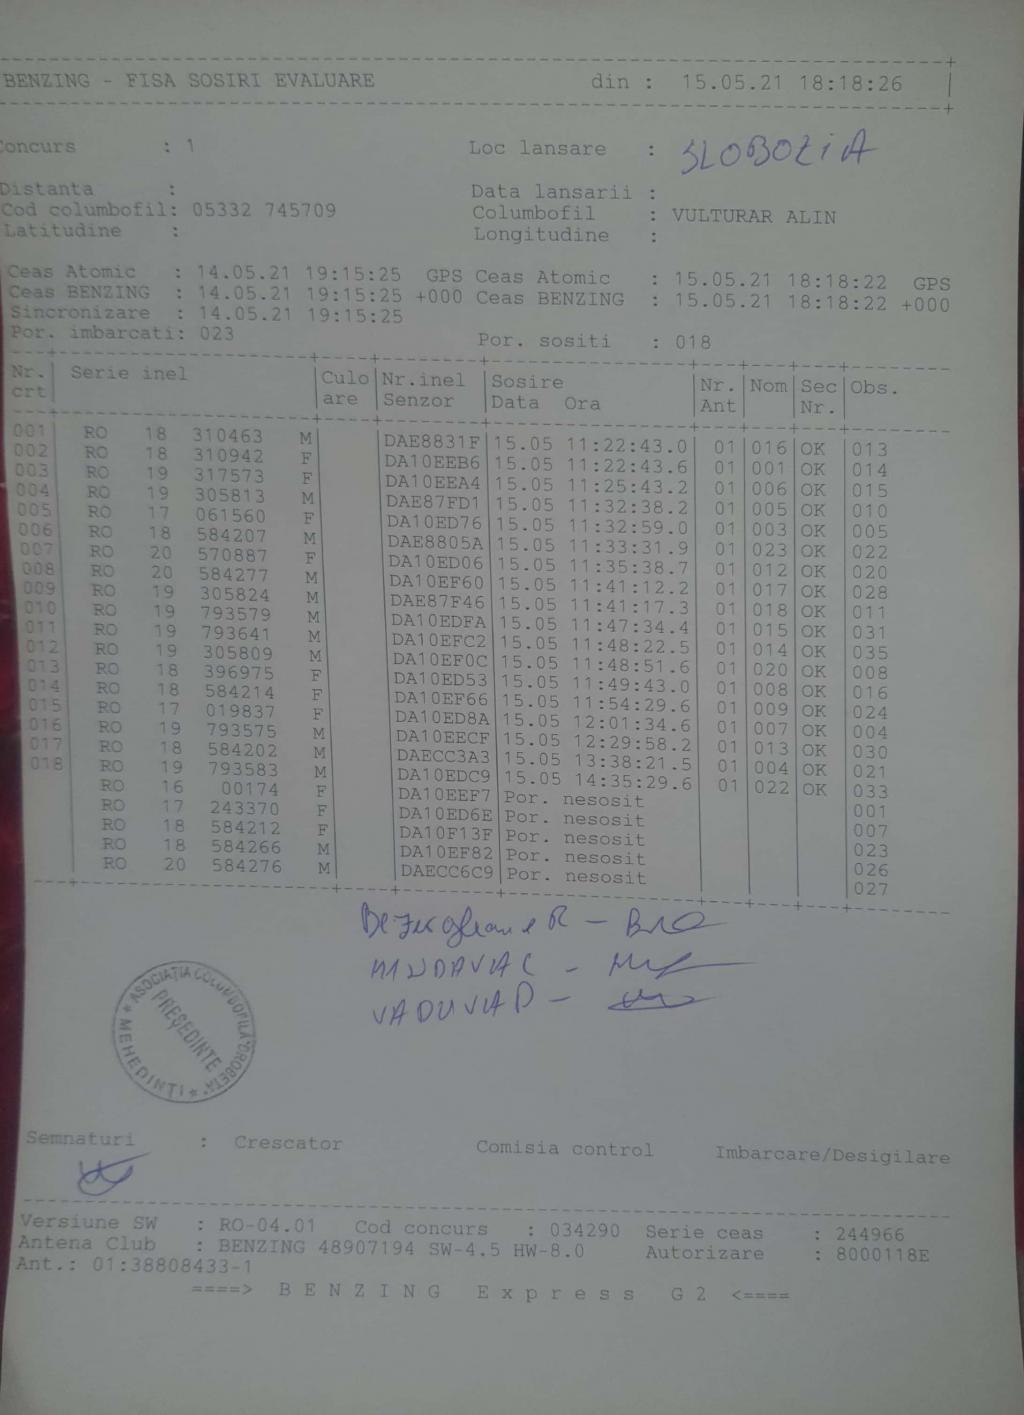 BENZING - FISA SOSIRI EVALUARE din : 15.05.21 18:18:26
Concurs : 1 Loc lansare : SLOBOZIA
Distanta : Data lansarii :
Cod columbofil: 05332 745709 Columbofil : VULTURAR ALIN
Latitudine : Longitudine :
Ceas Atomic : 14.05.21 19:15:25 GPS Ceas Atomic : 15.05.21 18:18:22 GPS
Ceas BENZING : 14.05.21 19:15:25 +000 Ceas BENZING : 15.05.21 18:18:22 +000
Sincronizare : 14.05.21 19:15:25
Por. imbarcati: 023 Por. sositi : 018
Nr. Serie inel Culo Nr.inel Sosire Nr. Nom Sec Obs.
crt are Senzor Data Ora Ant Nr.
001 RO 18 310463 M DAE8831F 15.05 11:22:43.0 01 016 OK 013
002 RO 18 310942 F DA10EEB6 15.05 11:22:43.6 01 001 OK 014
003 RO 19 317573 F DA10EEA4 15.05 11:25:43.2 01 006 OK 015
004 RO 19 305813 M DAE87FD1 15.05 11:32:38.2 01 005 OK 010
005 RO 17 061560 F DA10ED76 15.05 11:32:59.0 01 003 OK 005
006 RO 18 584207 M DAE8805A 15.05 11:33:31.9 01 023 OK 022
007 RO 20 570887 F DA10ED06 15.05 11:35:38.7 01 012 OK 020
008 RO 20 584277 M DA10EF60 15.05 11:41:12.2 01 017 OK 028
009 RO 19 305824 M DAE87F46 15.05 11:41:17.3 01 018 OK 011
010 RO 19 793579 M DA10EDFA 15.05 11:47:34.4 01 015 OK 031
011 RO 19 793641 M DA10EFC2 15.05 11:48:22.5 01 014 OK 035
012 RO 19 305809 M DA10EF0C 15.05 11:48:51.6 01 020 OK 008
013 RO 18 396975 F DA10ED53 15.05 11:49:43.0 01 008 OK 016
014 RO 18 584214 F DA10EF66 15.05 11:54:29.6 01 009 OK 024
015 RO 17 019837 F DA10ED8A 15.05 12:01:34.6 01 007 OK 004
016 RO 19 793575 M DA10EECF 15.05 12:29:58.2 01 013 OK 030
017 RO 18 584202 M DAECC3A3 15.05 13:38:21.5 01 004 OK 021
018 RO 19 793583 M DA10EDC9 15.05 14:35:29.6 01 022 OK 033
RO 16 00174 F DA10EEF7 Por. nesosit 001
RO 17 243370 F DA10ED6E Por. nesosit 007
RO 18 584212 F DA10F13F Por. nesosit 023
RO 18 584266 M DA10EF82 Por. nesosit 026
RO 20 584276 M DAECC6C9 Por. nesosit 027
VADUVA D -
ASOCIAŢIA COLUMBOFILĂ "DROBETA" * MEHEDINŢI *
PREŞEDINTE
Semnaturi : Crescator Comisia control Imbarcare/Desigilare
Versiune SW : RO-04.01 Cod concurs : 034290 Serie ceas : 244966
Antena Club : BENZING 48907194 SW-4.5 HW-8.0 Autorizare : 8000118E
Ant.: 01:38808433-1
====> B E N Z I N G E x p r e s s G 2 <====